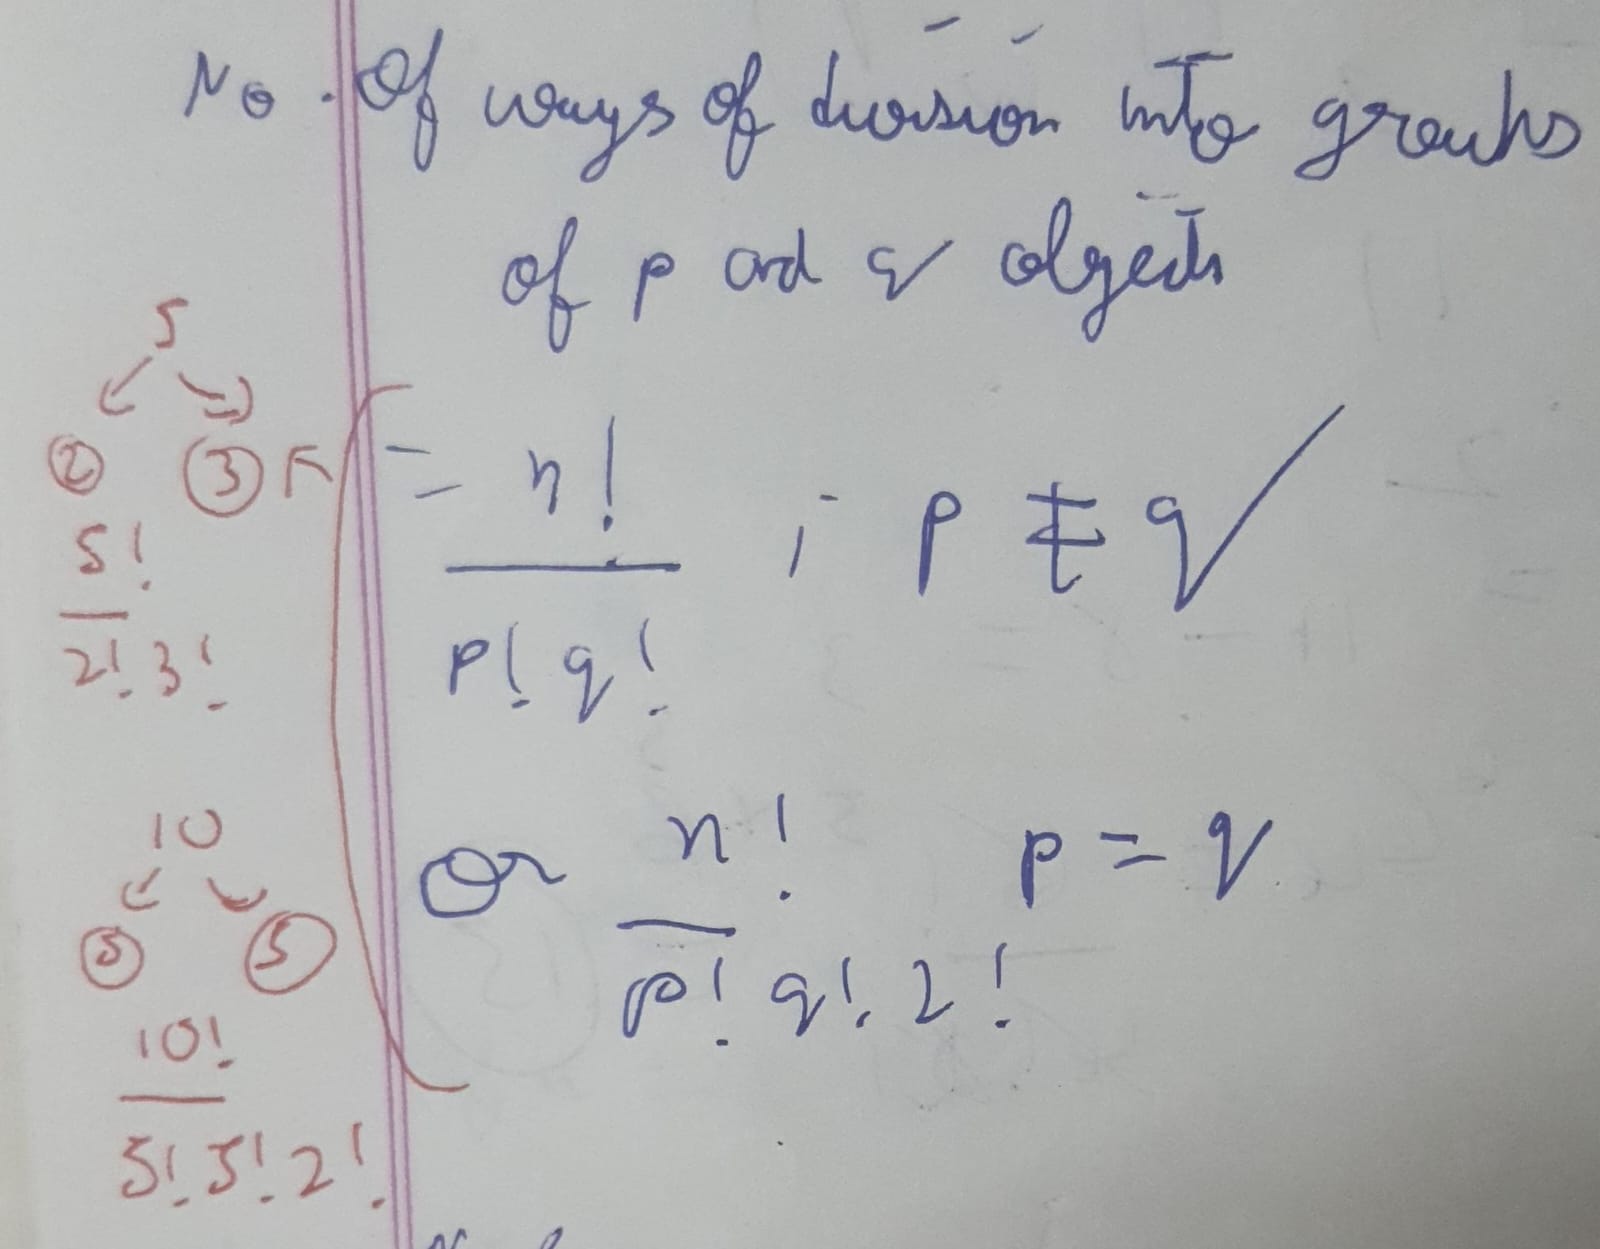 No. Of ways of division into groups
of p and q objects
= n! ; p ≠ q
p! q!
Or n! p = q
p! q! 2!
5
2 3
5!
2! 3!
10
5 5
10!
5! 5! 2!